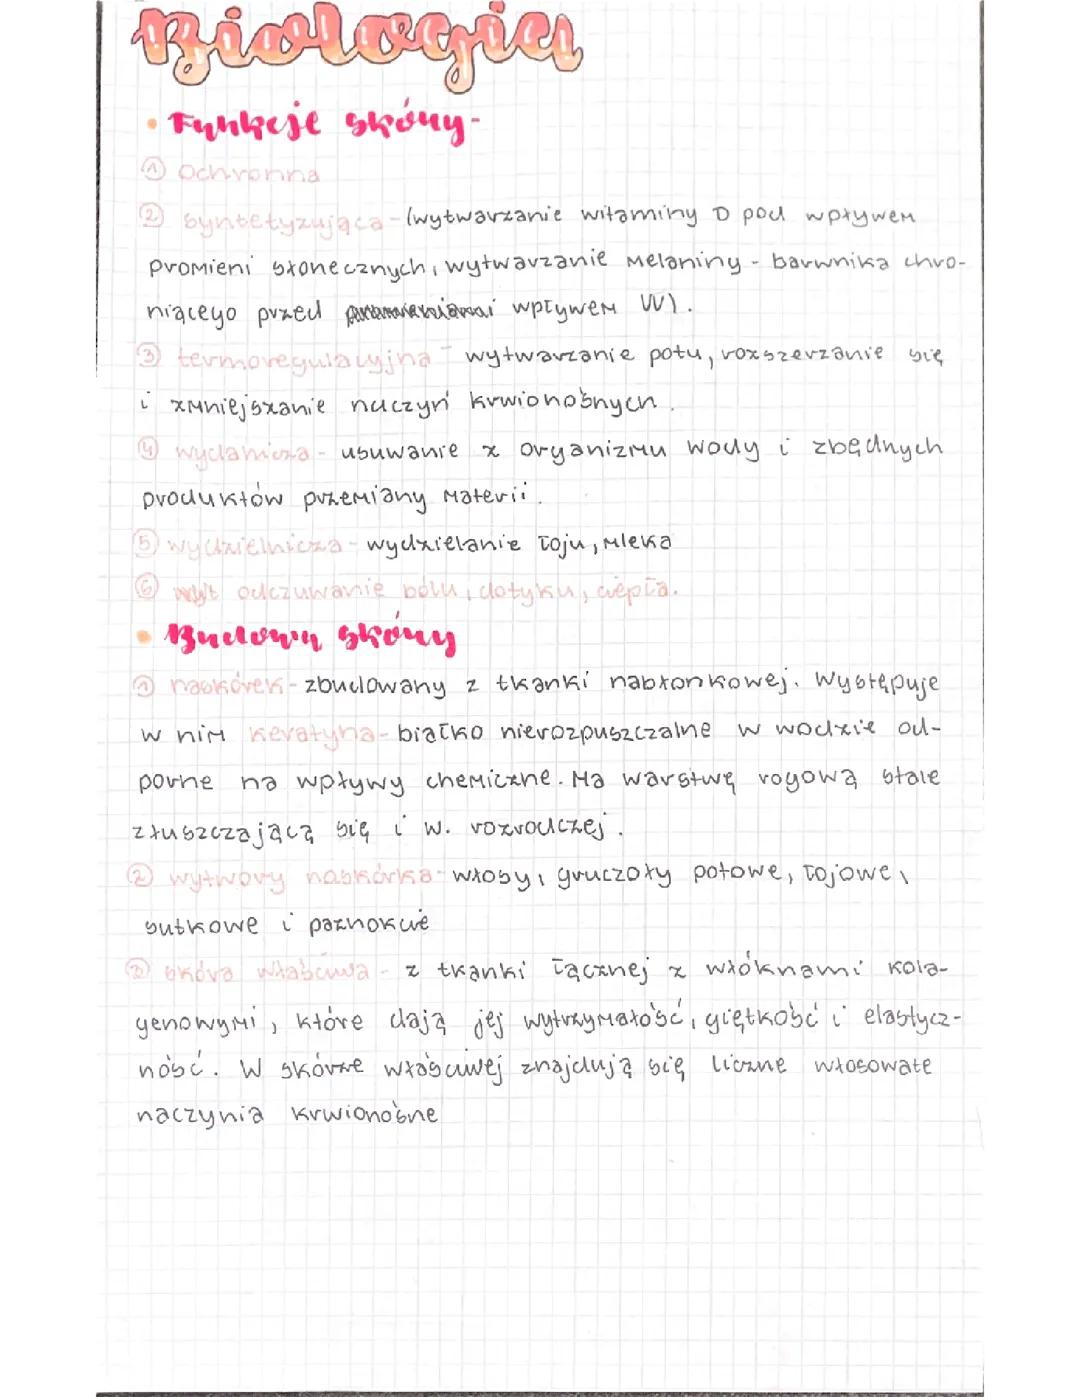 Biologia
• Funkcje skóry-
① ochronna
② syntetyzująca - (wytwarzanie witaminy D pod wpływem
promieni słonecznych, wytwarzanie melaniny - barwnika chro-
niącego przed wpływem UV).
③ termoregulacyjna - wytwarzanie potu, rozszerzanie się
i zmniejszanie naczyń krwionośnych.
④ wydalnicza - usuwanie z organizmu wody i zbędnych
produktów przemiany materii.
⑤ wydzielnicza - wydzielanie łoju, mleka
⑥ odczuwanie bólu, dotyku, ciepła.
• Budowa skóry
① naskórek - zbudowany z tkanki nabłonkowej. Występuje
w nim keratyna - białko nierozpuszczalne w wodzie od-
porne na wpływy chemiczne. Ma warstwę rogową stale
złuszczającą się i w. rozrodczej.
② wytwory naskórka - włosy, gruczoły potowe, łojowe,
sutkowe i paznokcie
③ skóra właściwa - z tkanki łącznej z włóknami kola-
genowymi, które dają jej wytrzymałość, giętkość i elastycz-
ność. W skórze właściwej znajdują się liczne włosowate
naczynia krwionośne